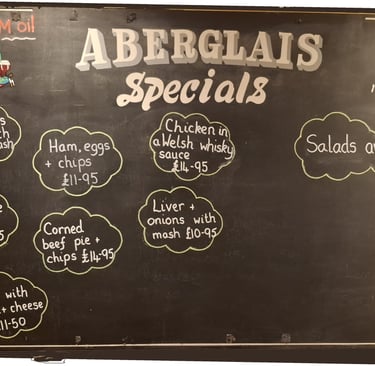 M oil
ABERGLAIS
Specials
Ham, eggs
+ chips
£11-95
Chicken in
a Welsh whisky
sauce
£14-95
Salads a
Corned
beef pie +
chips £14-95
Liver +
onions with
mash £10-95
with
+ cheese
11-50